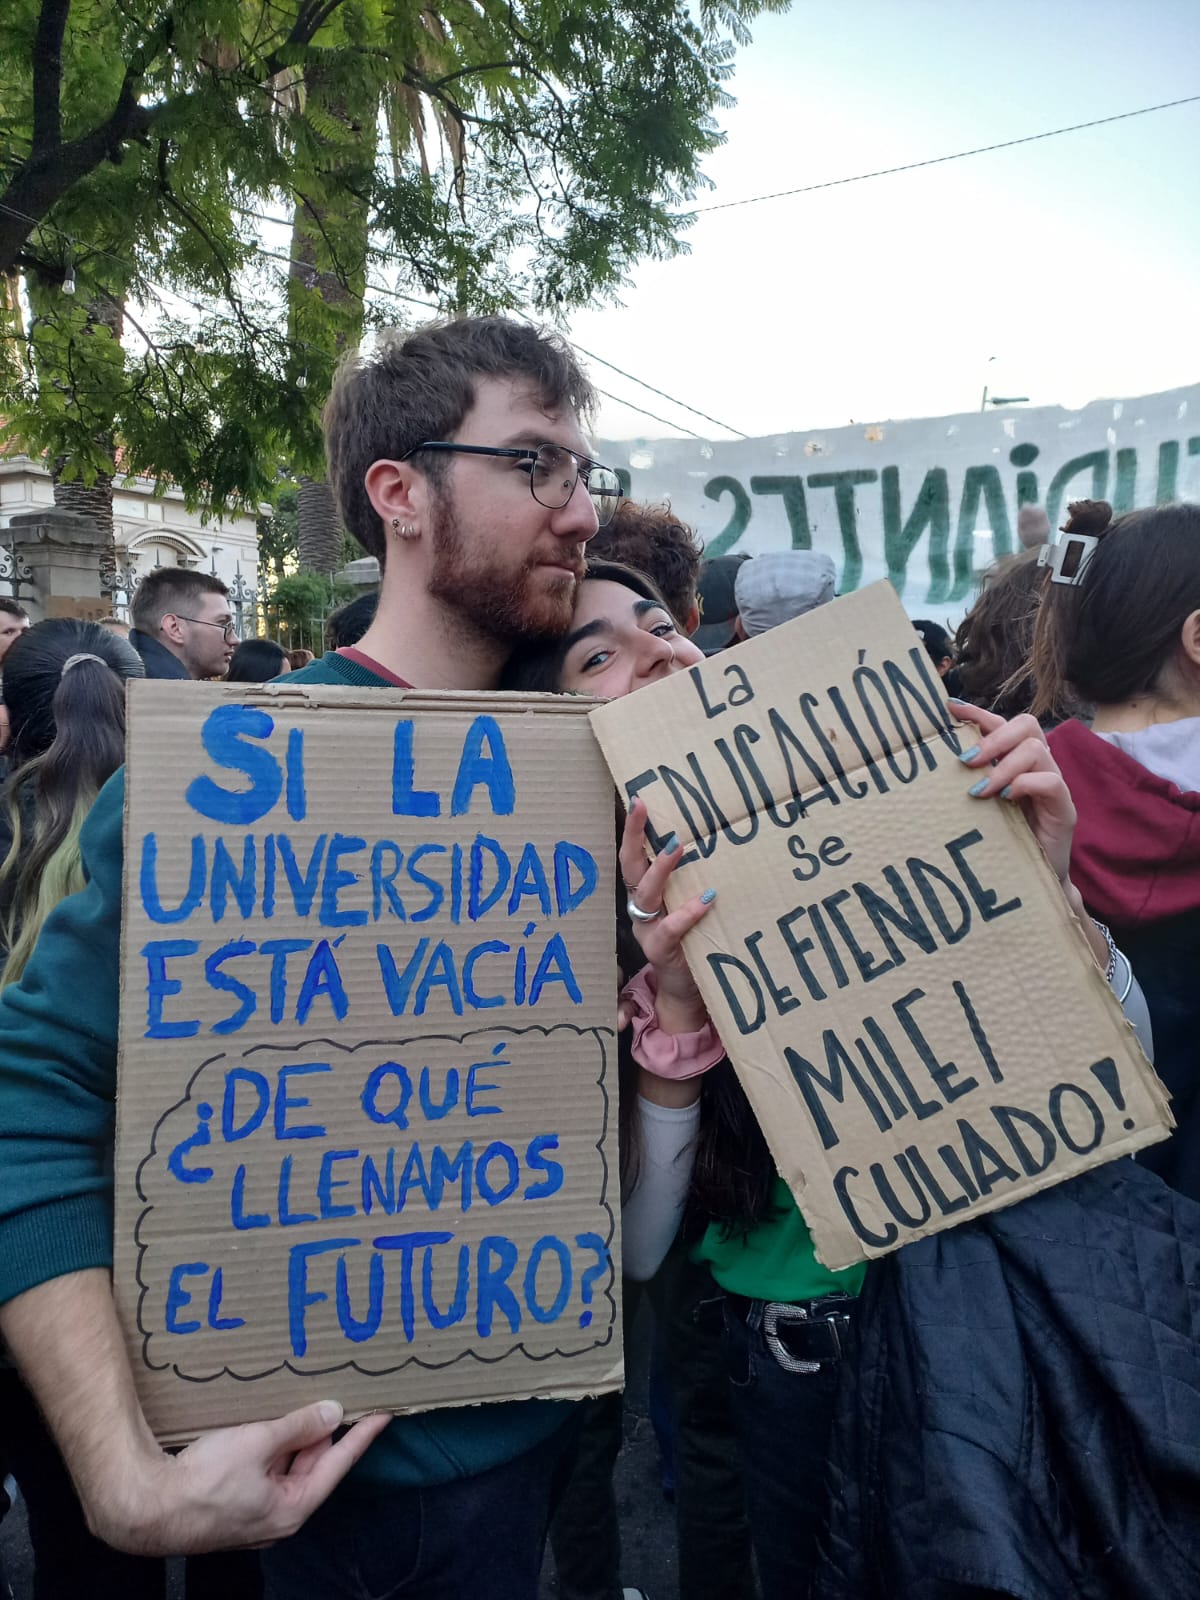 SI LA
UNIVERSIDAD
ESTÁ VACÍA
¿DE QUÉ
LLENAMOS
EL FUTURO?
La
EDUCACIÓN
Se
DEFIENDE
MILEI
CULIADO!